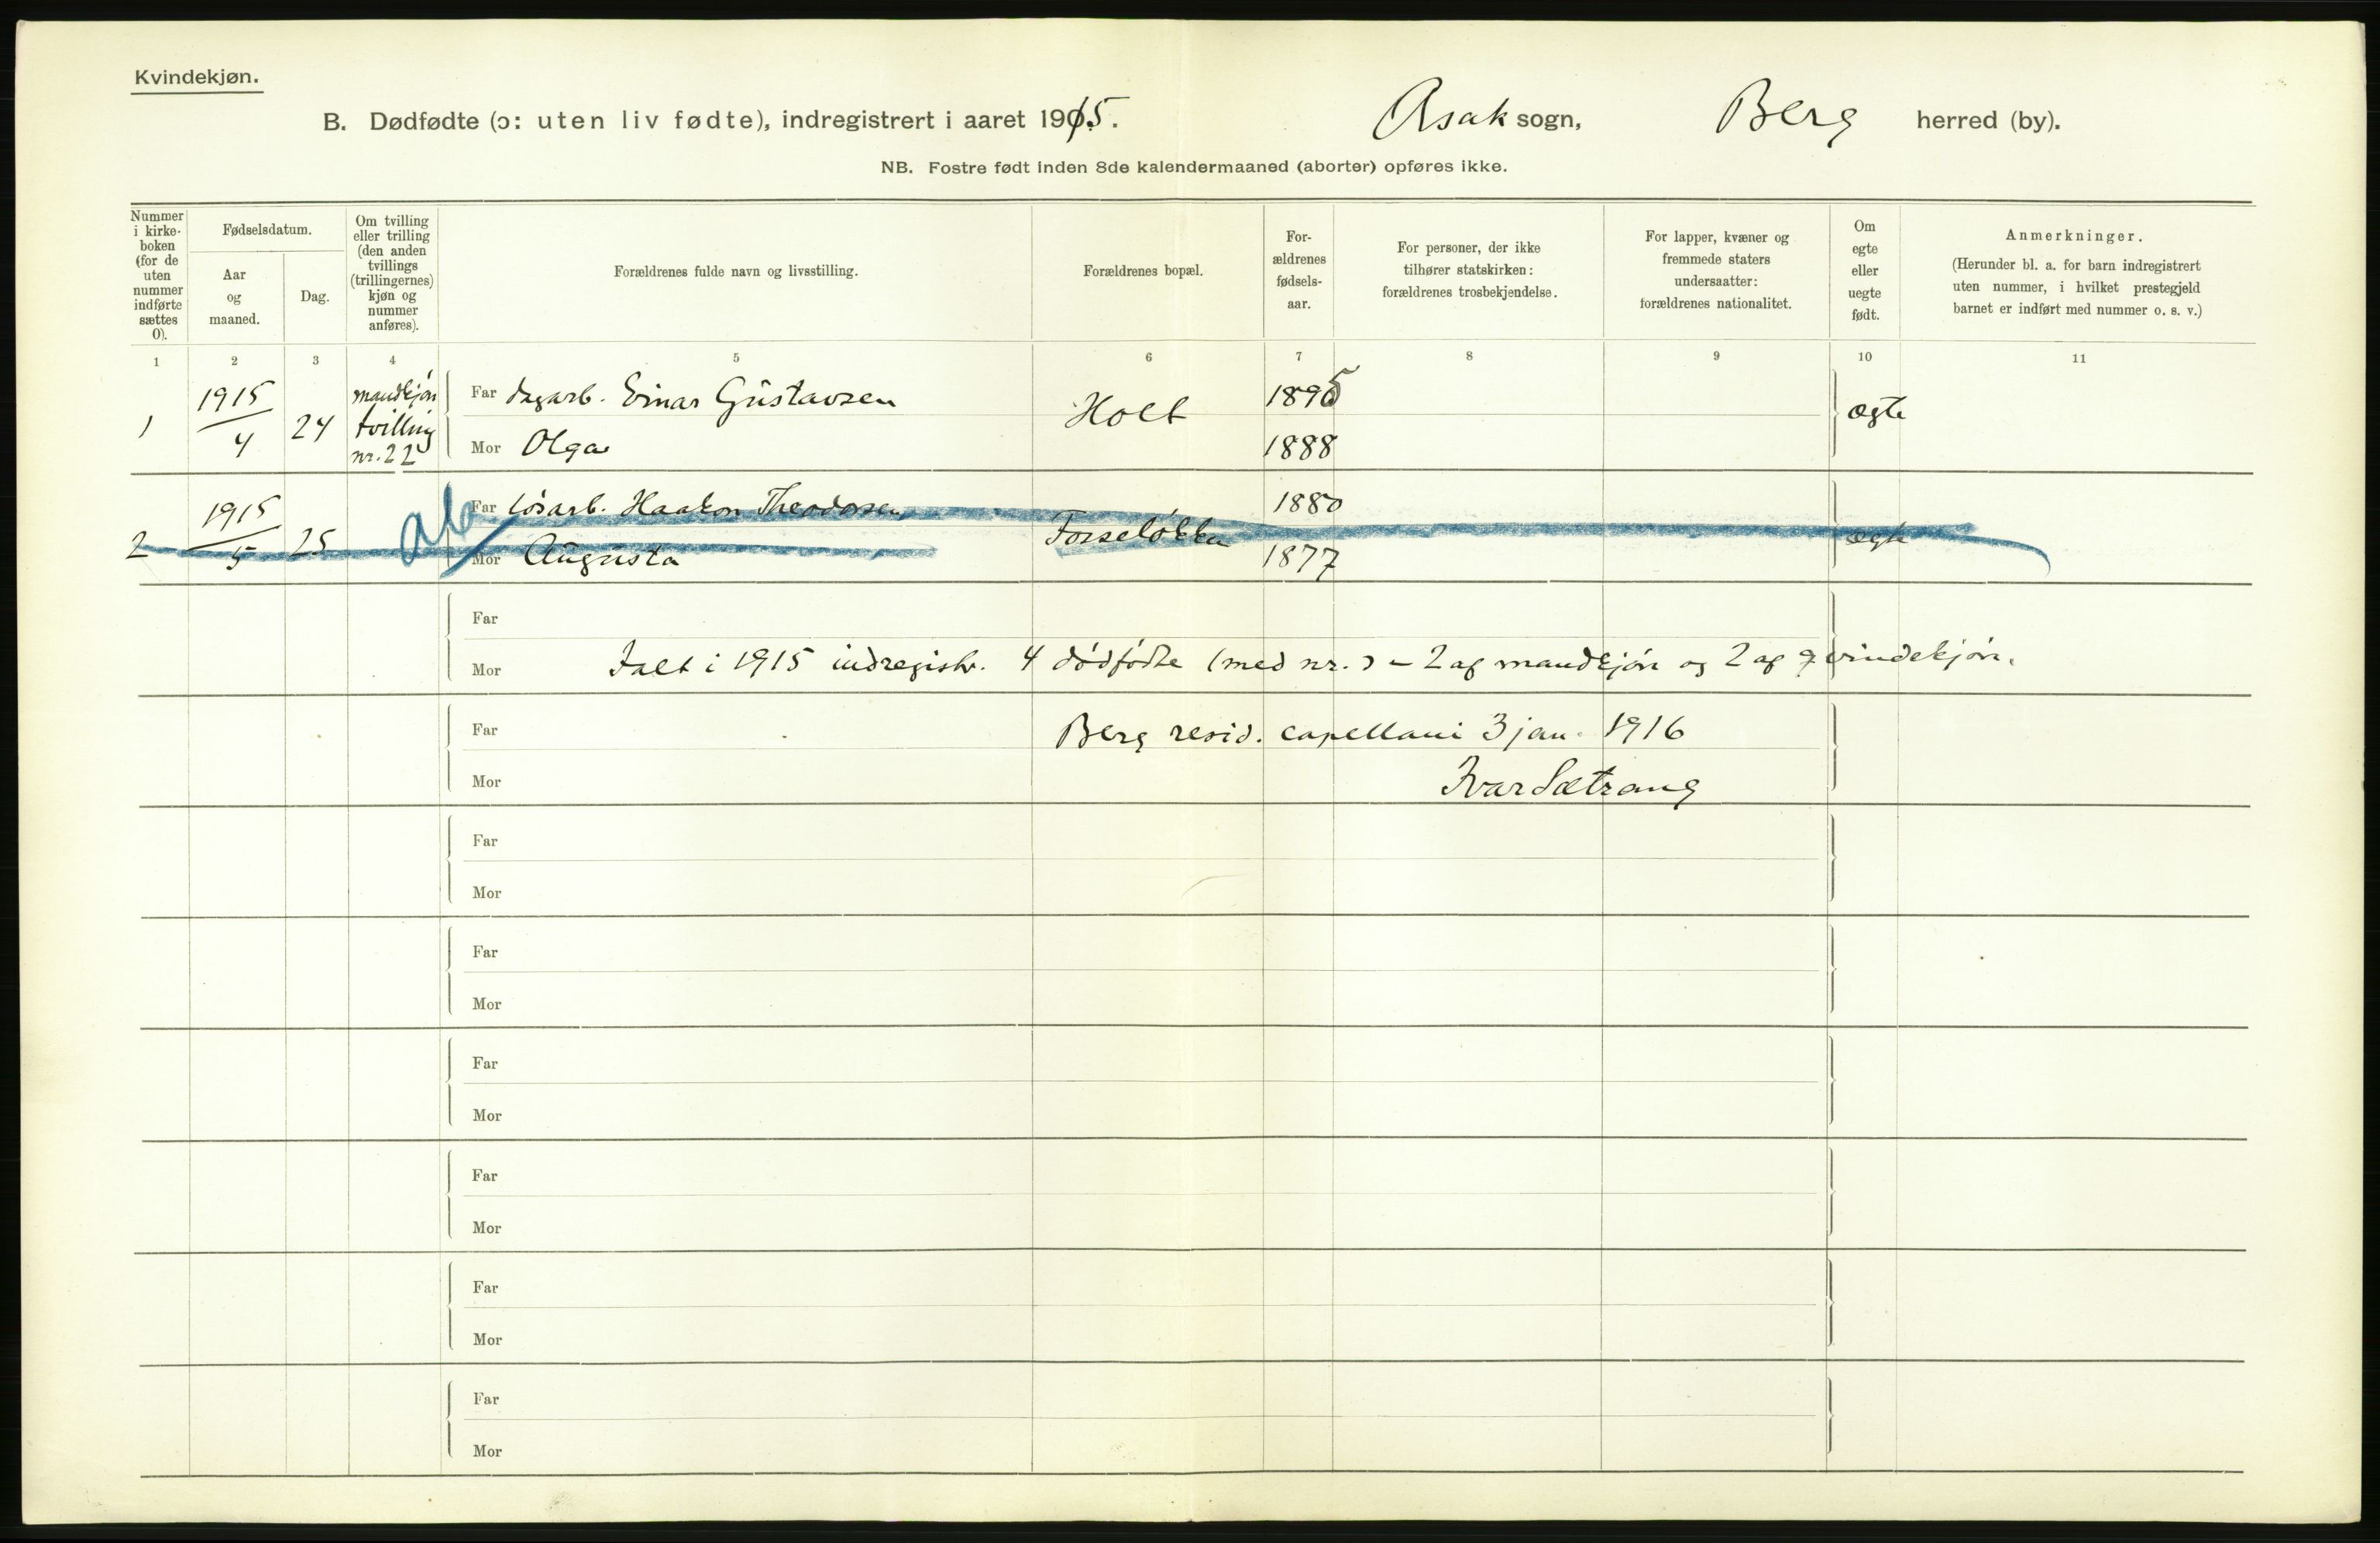 Kvindekjøn.
B. Dødfødte (ɔ: uten liv fødte), indregistrert i aaret 1915. Asak sogn, Berg herred (by).
NB. Fostre født inden 8de kalendermaaned (aborter) opføres ikke.
Nummer i kirke-boken (for de uten nummer indførte sættes 0).
Fødselsdatum.
Aar og maaned.
Dag.
Om tvilling eller trilling (den anden tvillings (trillingernes) kjøn og nummer anføres).
Forældrenes fulde navn og livsstilling.
Forældrenes bopæl.
For-ældrenes fødsels-aar.
For personer, der ikke tilhører statskirken: forældrenes trosbekjendelse.
For lapper, kvæner og fremmede staters undersaatter: forældrenes nationalitet.
Om egte eller uegte født.
Anmerkninger.
(Herunder bl. a. for barn indregistrert uten nummer, i hvilket prestegjeld barnet er indført med nummer o. s. v.)
1 2 3 4 5 6 7 8 9 10 11
1 1915/4 24 mandkjøn tvilling nr. 22 Far dagarb. Einar Gustavsen Holt 1895 ægte
Mor Olga 1888
2 1915/5 25 ab Far løsarb. Haakon Theodorsen Forseløkka 1880 ægte
Mor Augusta 1877
Far
Mor Ialt i 1915 indregistr. 4 dødfødte (med nr.) - 2 af mandkjøn og 2 af qvindekjøn.
Far Berg resid. capellani 3 jan. 1916
Mor Ivar Sætrang
Far
Mor
Far
Mor
Far
Mor
Far
Mor
Far
Mor
Far
Mor